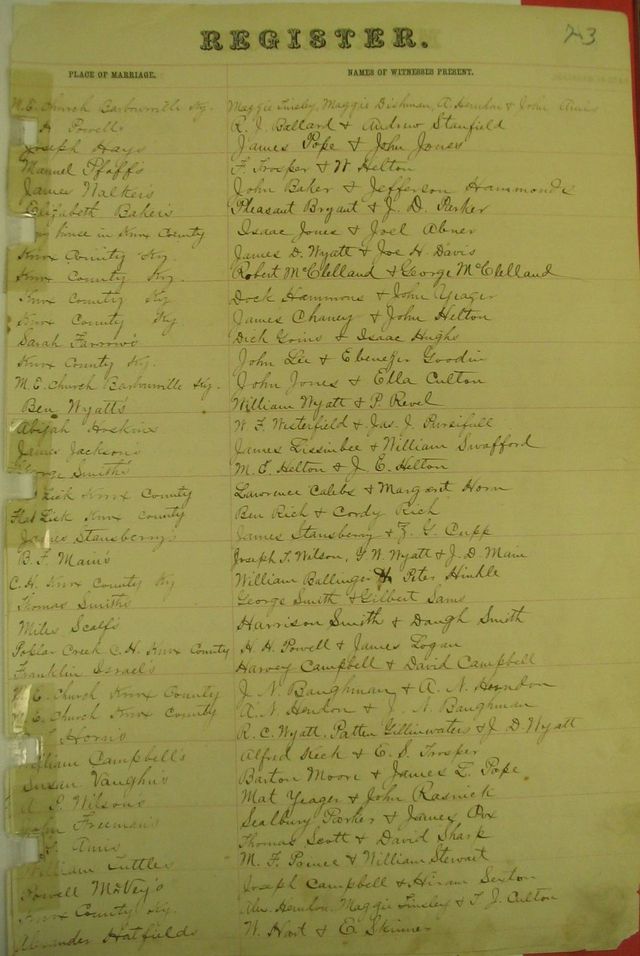 REGISTER.
23
PLACE OF MARRIAGE. NAMES OF WITNESSES PRESENT.
M.E. Church Barbourville Ky. Maggie Tinsley, Maggie Dishman, A. Herndon & John Amis
H Powell's R. J. Ballard & Andrew Stanfield
Joseph Hays' James Pope & John Jones
Manuel Pfaff's F. Trosper & W Helton
James Walker's John Baker & Jefferson Hammonds
Elizabeth Baker's Pleasant Bryant & J. D. Parker
house in Knox County Isaac Jones & Joel Abner
Knox County Ky. James D. Wyatt & Joe H. Davis
Knox County Ky. Robert McClelland & George McClelland
Knox County Ky Dock Hammons & John Yeager
Knox County Ky James Chaney & John Helton
Sarah Farrow's Dick Goins & Isaac Hughs
Knox County Ky. John Lee & Ebenezer Goodin
M.E. Church Barbourville Ky. John Jones & Ella Culton
Ben Wyatt's William Wyatt & P. Revel
Abijah Hoskins W. F. Westerfield & Jas. J. Pursifull
James Jackson's James Lissinbee & William Swafford
George Smith's M. E. Helton & J. E. Helton
Lick Knox County Lawrence Calebs & Margaret Horn
Flat Lick Knox County Ben Rich & Cordy Rich
James Stansberry's James Stansberry & Z. G. Cupp
B. F. Main's Joseph T. Wilson, G. W. Wyatt & J. D. Main
C.H. Knox County Ky William Ballinger & Peter Hinkle
Thomas Smith's George Smith & Gilbert Sams
Miles Scalf's Harrison Smith & Daugh Smith
Poplar Creek C.H. Knox County H. H. Powell & James Logan
Franklin Israel's Harvey Campbell & David Campbell
M.E. Church Knox County J. N. Baughman & A. N. Herndon
M.E. Church Knox County A. N. Herndon & J. N. Baughman
Horns R. C. Wyatt, Patten Gillinwaters & J. D. Wyatt
William Campbell's Alfred Keck & E. S. Trosper
Susan Vaughn's Barton Moore & James L. Pope
A P. Wilsons Mat Yeager & John Rasnick
John Freeman's Sealbury Parker & James Cox
Amis Thomas Scott & David Sharp
William Tuttles M. F. Ponce & William Stewart
Powell McVey's Joseph Campbell & Hiram Sexton
Knox County Ky. Herndon, Maggie Tinsley & T. J. Culton
Alexander Hatfields W. Hart & E. Skinner